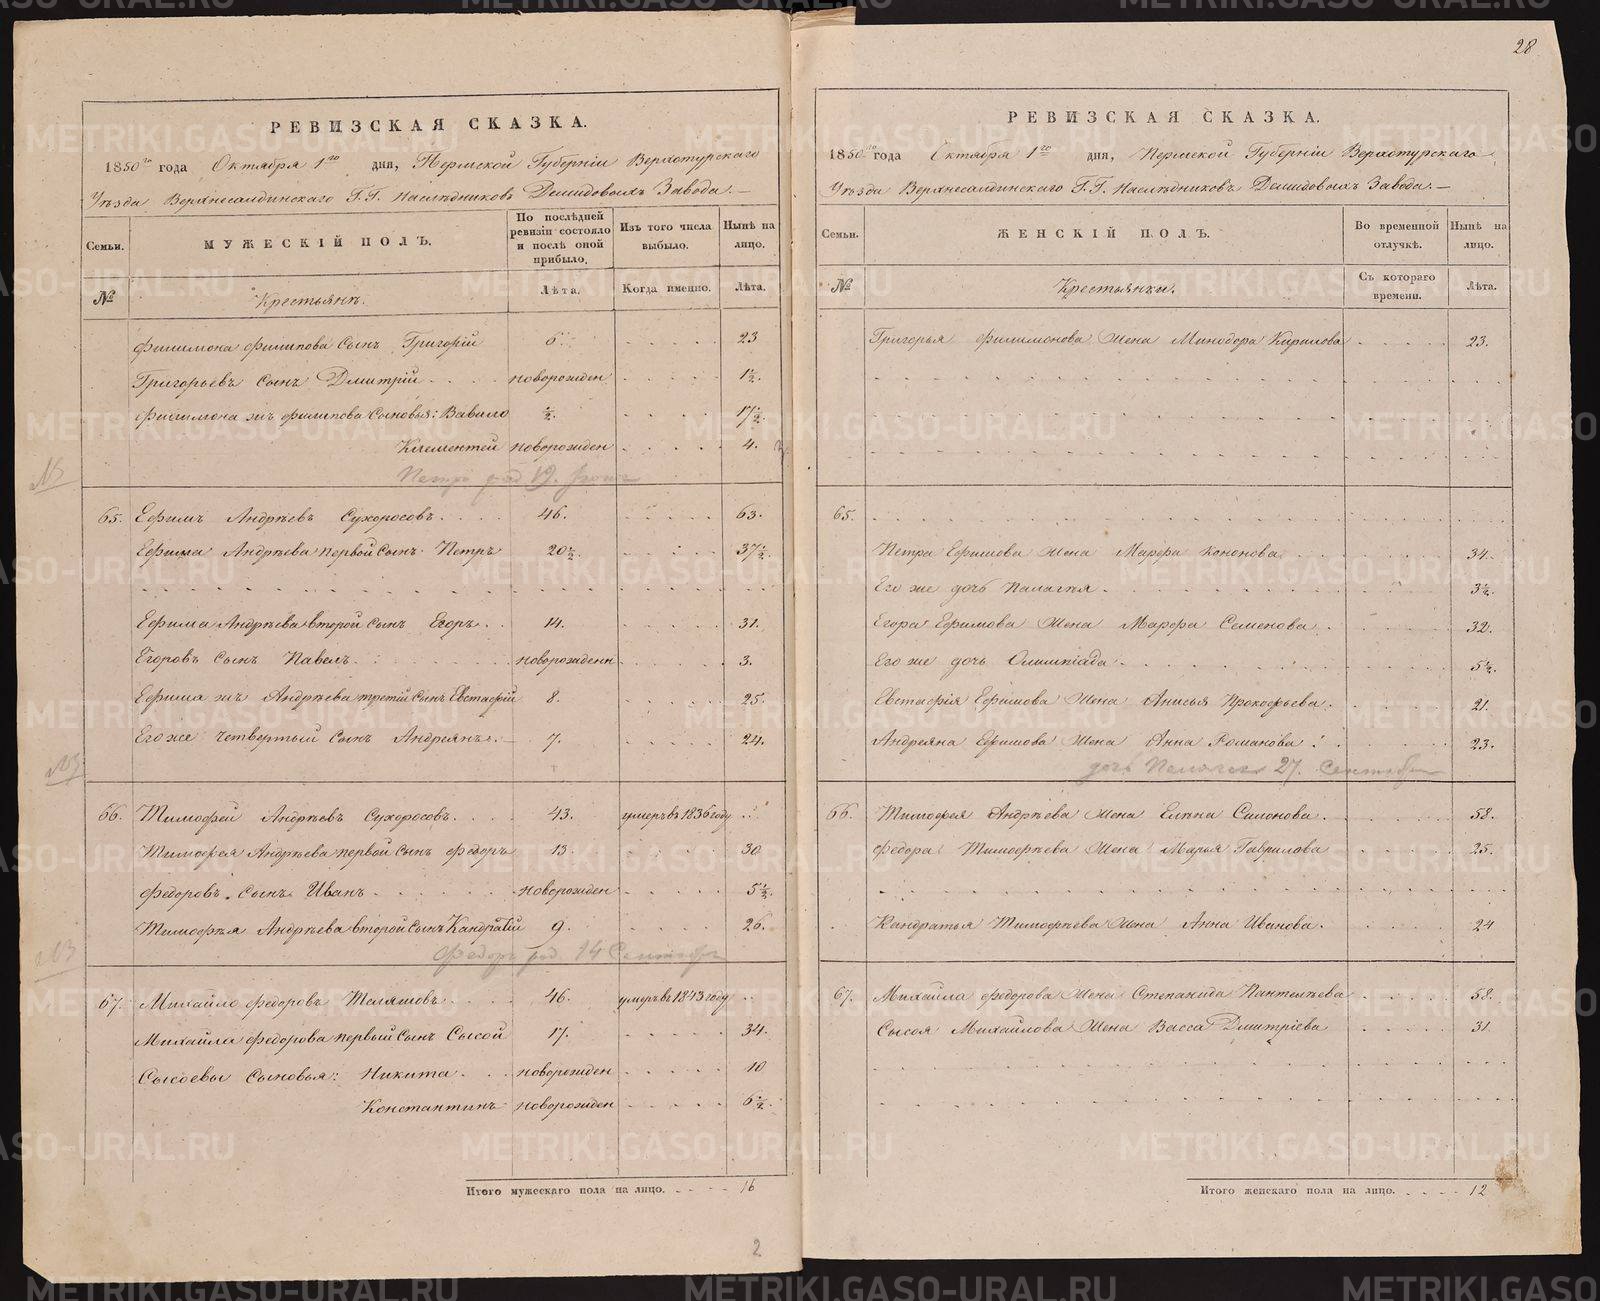 28
РЕВИЗСКАЯ СКАЗКА.
1850го года Октября 1го дня, Пермской Губернiи Верхотурскаго
Уѣзда Верхнесалдинскаго Г.Г. Наслѣдниковъ Демидовыхъ Завода.—
Семьи. МУЖЕСКІЙ ПОЛЪ. По послѣдней ревизіи состояло и послѣ оной прибыло. Изъ того числа выбыло. Нынѣ на лицо.
№ Крестьянъ. Лѣта. Когда именно. Лѣта.
Филимона Филипова Сынъ Григорій 6. 23
Григорьевъ сынъ Дмитрій новорожден 1½.
Филимона жъ Филипова Сыновья: Вавило ½. 17½.
Климентей новорожден 4.
Петръ род 19.
65. Ефимъ Андрѣевъ Сухоросовъ 46. 63.
Ефима Андрѣева первой сынъ Петръ 20½. 37½.
Ефима Андрѣева второй сынъ Егоръ 14. 31.
Егоровъ сынъ Павелъ новорожденн 3.
Ефима жъ Андрѣева третій сынъ Евстафій 8. 25.
Его же четвертый сынъ Андреянъ.— 7. 24.
66. Тимофей Андрѣевъ Сухоросовъ 43. умеръ въ 1836 году
Тимофея Андрѣева первой сынъ Федоръ 13. 30
Федоровъ сынъ Иванъ новорожден 5½.
Тимофѣя Андрѣева второй сынъ Кандратій 9. 26.
Федоръ род. 14 Сентябр
67. Михайло Федоровъ Теляшовъ 46. умеръ въ 1843 году
Михайла Федорова первый сынъ Сысой 17. 34.
Сысоевы Сыновья: Никита новорожден 10
Константинъ новорожден 6½.
Итого мужескаго пола на лицо. 16
2
РЕВИЗСКАЯ СКАЗКА.
1850го года Октября 1го дня, Пермской Губернiи Верхотурскаго
Уѣзда Верхнесалдинскаго Г.Г. Наслѣдниковъ Демидовыхъ Завода.—
Семьи. ЖЕНСКІЙ ПОЛЪ. Во временной отлучкѣ. Нынѣ на лицо.
№ Крестьянки. Съ котораго времени. Лѣта.
Григорья Филимонова Жена Минодора Кирилова 23.
65.
Петра Ефимова жена Марфа Кононова 34.
Его же дочь Палагея 3½.
Егора Ефимова Жена Марфа Семенова 32.
Его же дочь Олимпіада 5½.
Евстафія Ефимова Жена Анисья Прокофьева 21.
Андреяна Ефимова Жена Анна Романова 23.
дочь Пелагея 27. Сентября
66. Тимофея Андрѣева Жена Елѣна Симонова. 58.
Федора Тимофѣева Жена Марья Гаврилова 25.
Кандратья Тимофѣева Жена Анна Иванова. 24
67. Михайла Федорова Жена Степанида Пантелѣева 58.
Сысоя Михайлова Жена Васса Дмитріева 31
Итого женскаго пола на лицо. 12
METRIKI.GASO-URAL.RU